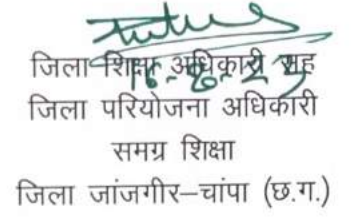 जिला शिक्षा अधिकारी सह
जिला परियोजना अधिकारी
समग्र शिक्षा
जिला जांजगीर–चांपा (छ.ग.)